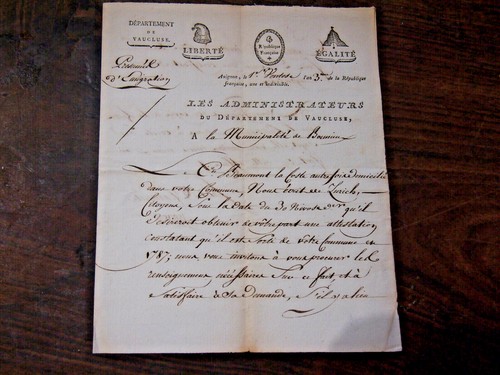 DÉPARTEMENT
DE
VAUCLUSE.
LIBERTÉ
République
Française
ÉGALITÉ
d'Emigration
Avignon, le 1er Ventose l'an 3me de la République
française, une et indivisible.
LES ADMINISTRATEURS
DU DÉPARTEMENT DE VAUCLUSE,
A la Municipalité de
Beaumont la Coste autrefois domicilié
dans votre Commune, Nous écrit de Zurich,
Citoyens, sous la date du 30 Nivose der qu'il
désireroit obtenir de votre part une attestation
constatant qu'il est sorti de votre Commune en
1787; nous vous invitons à vous procurer les
renseignemens nécessaires sur ce fait, et à
satisfaire à sa demande, s'il y a lieu